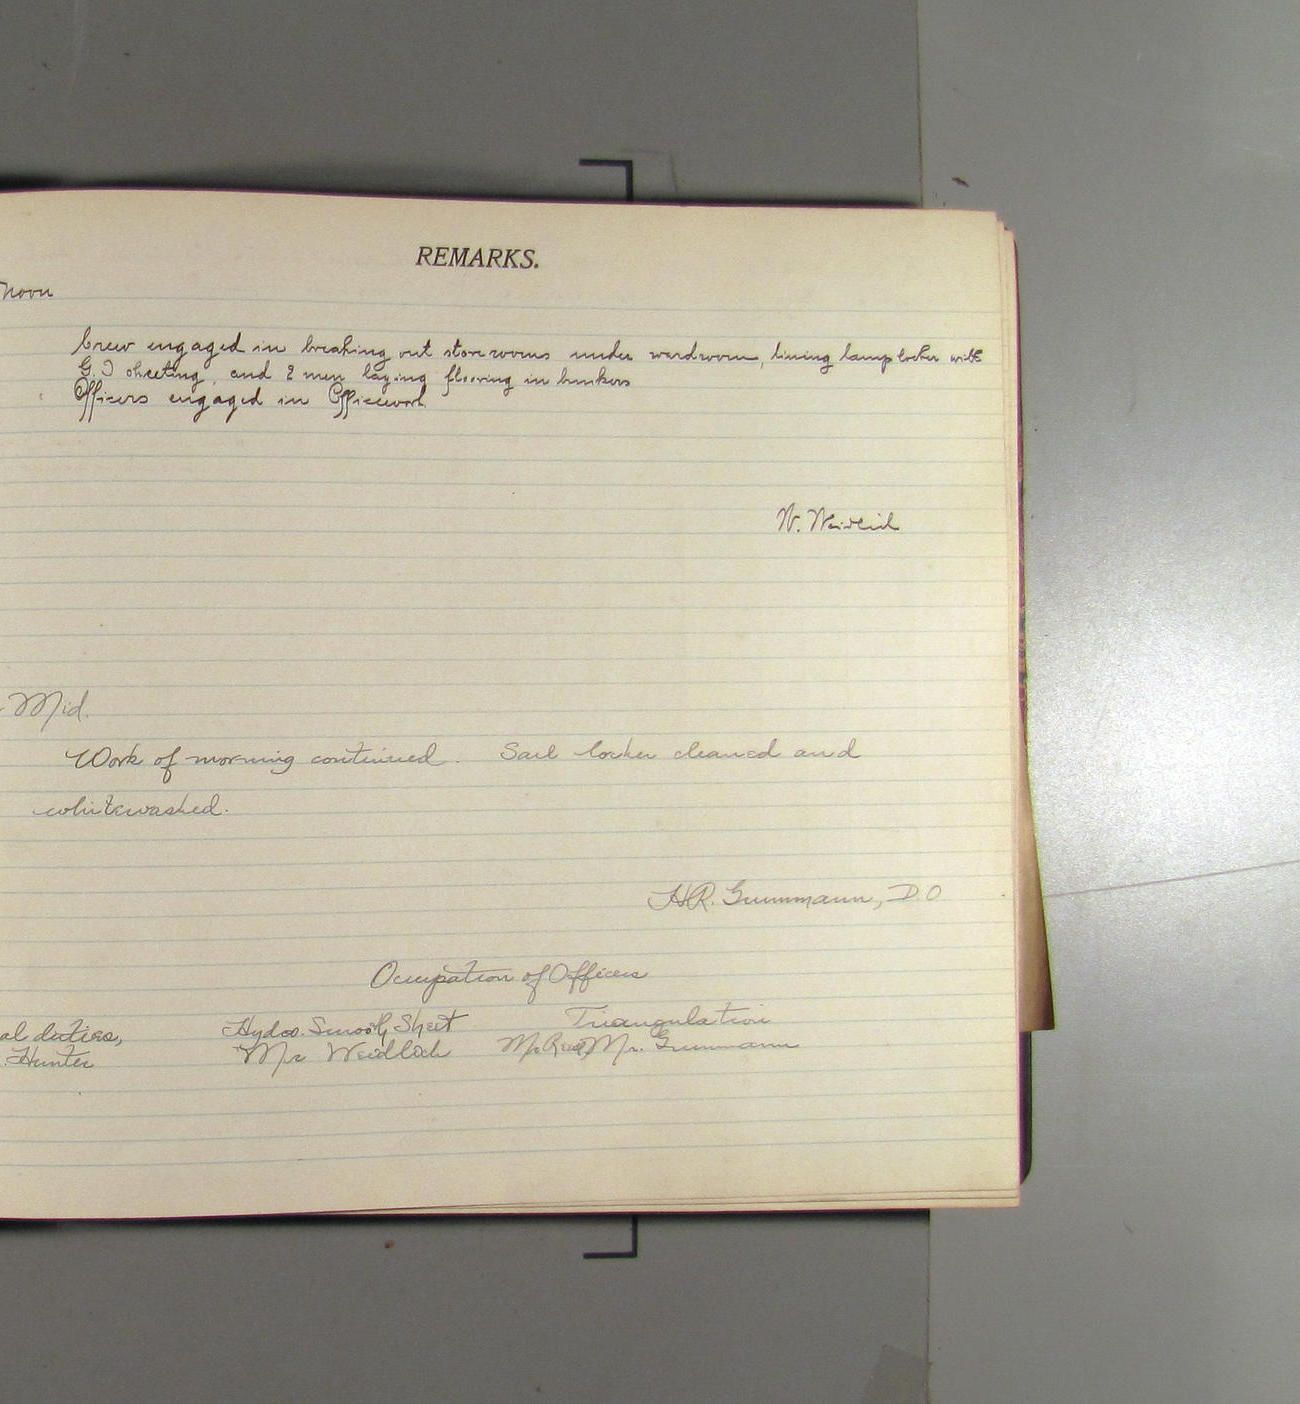 REMARKS.
noon
Crew engaged in breaking out storerooms under wardroom, lining lamp locker with
G. I sheeting, and 2 men laying flooring in bunkers
Officers engaged in Officework.
W.
Mid.
Work of morning continued. Sail locker cleaned and
whitewashed.
H.R. Grummann, D O
Occupation of Officers
al duties, Hydro. Smooth Sheet Triangulation
Hunter Mr Mr. Grummann